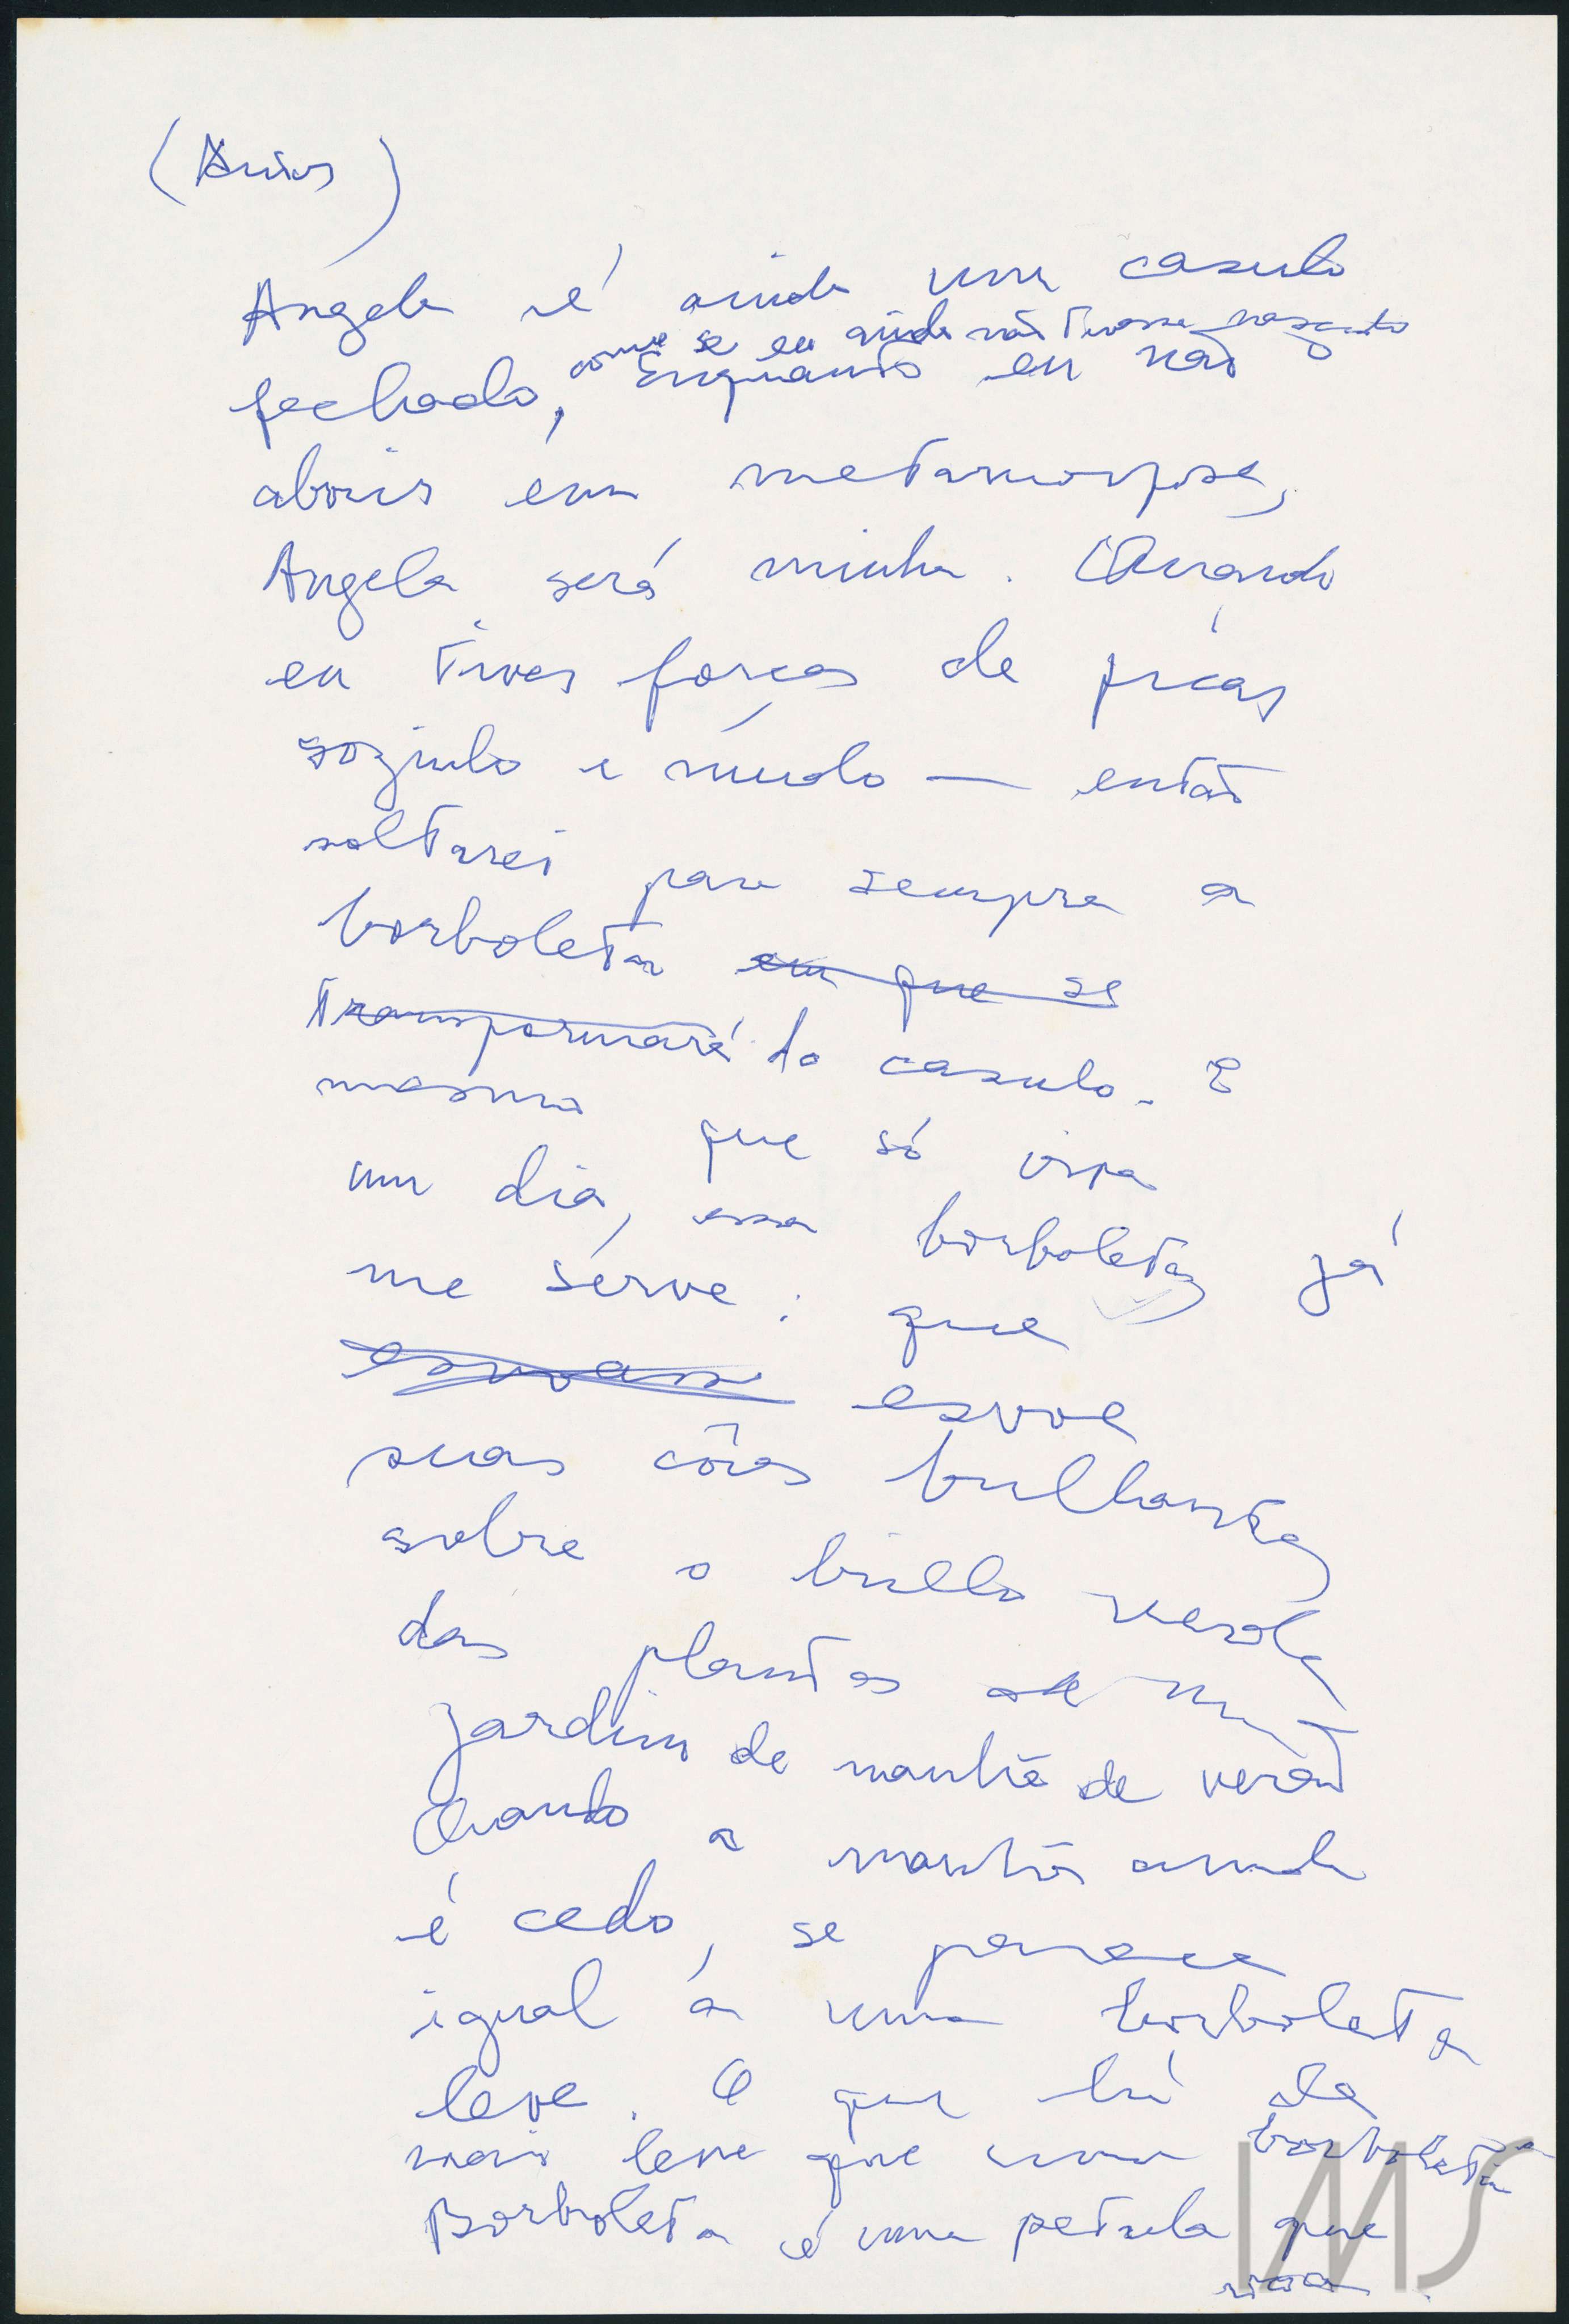 (Autor)
Angela é ainda um casulo
como se eu ainda não tivesse nascido
fechado, Enquanto eu não
abrir em metamorfose,
Angela será minha. Quando
eu tiver forças de ficar
sozinho e mudo — então
soltarei para sempre a
borboleta em que se
transformará do casulo. E
mesmo que só viva
um dia, essa borboleta, já
me serve: que
esvoe
suas côres brilhantes
sobre o brilho verde
das plantas num
jardim de manhã de verão
Quando a manhã ainda
é cedo, se parece
igual a uma borboleta
leve. O que há de
mais leve que uma borboleta
Borboleta é uma petala que
voa.
IMS